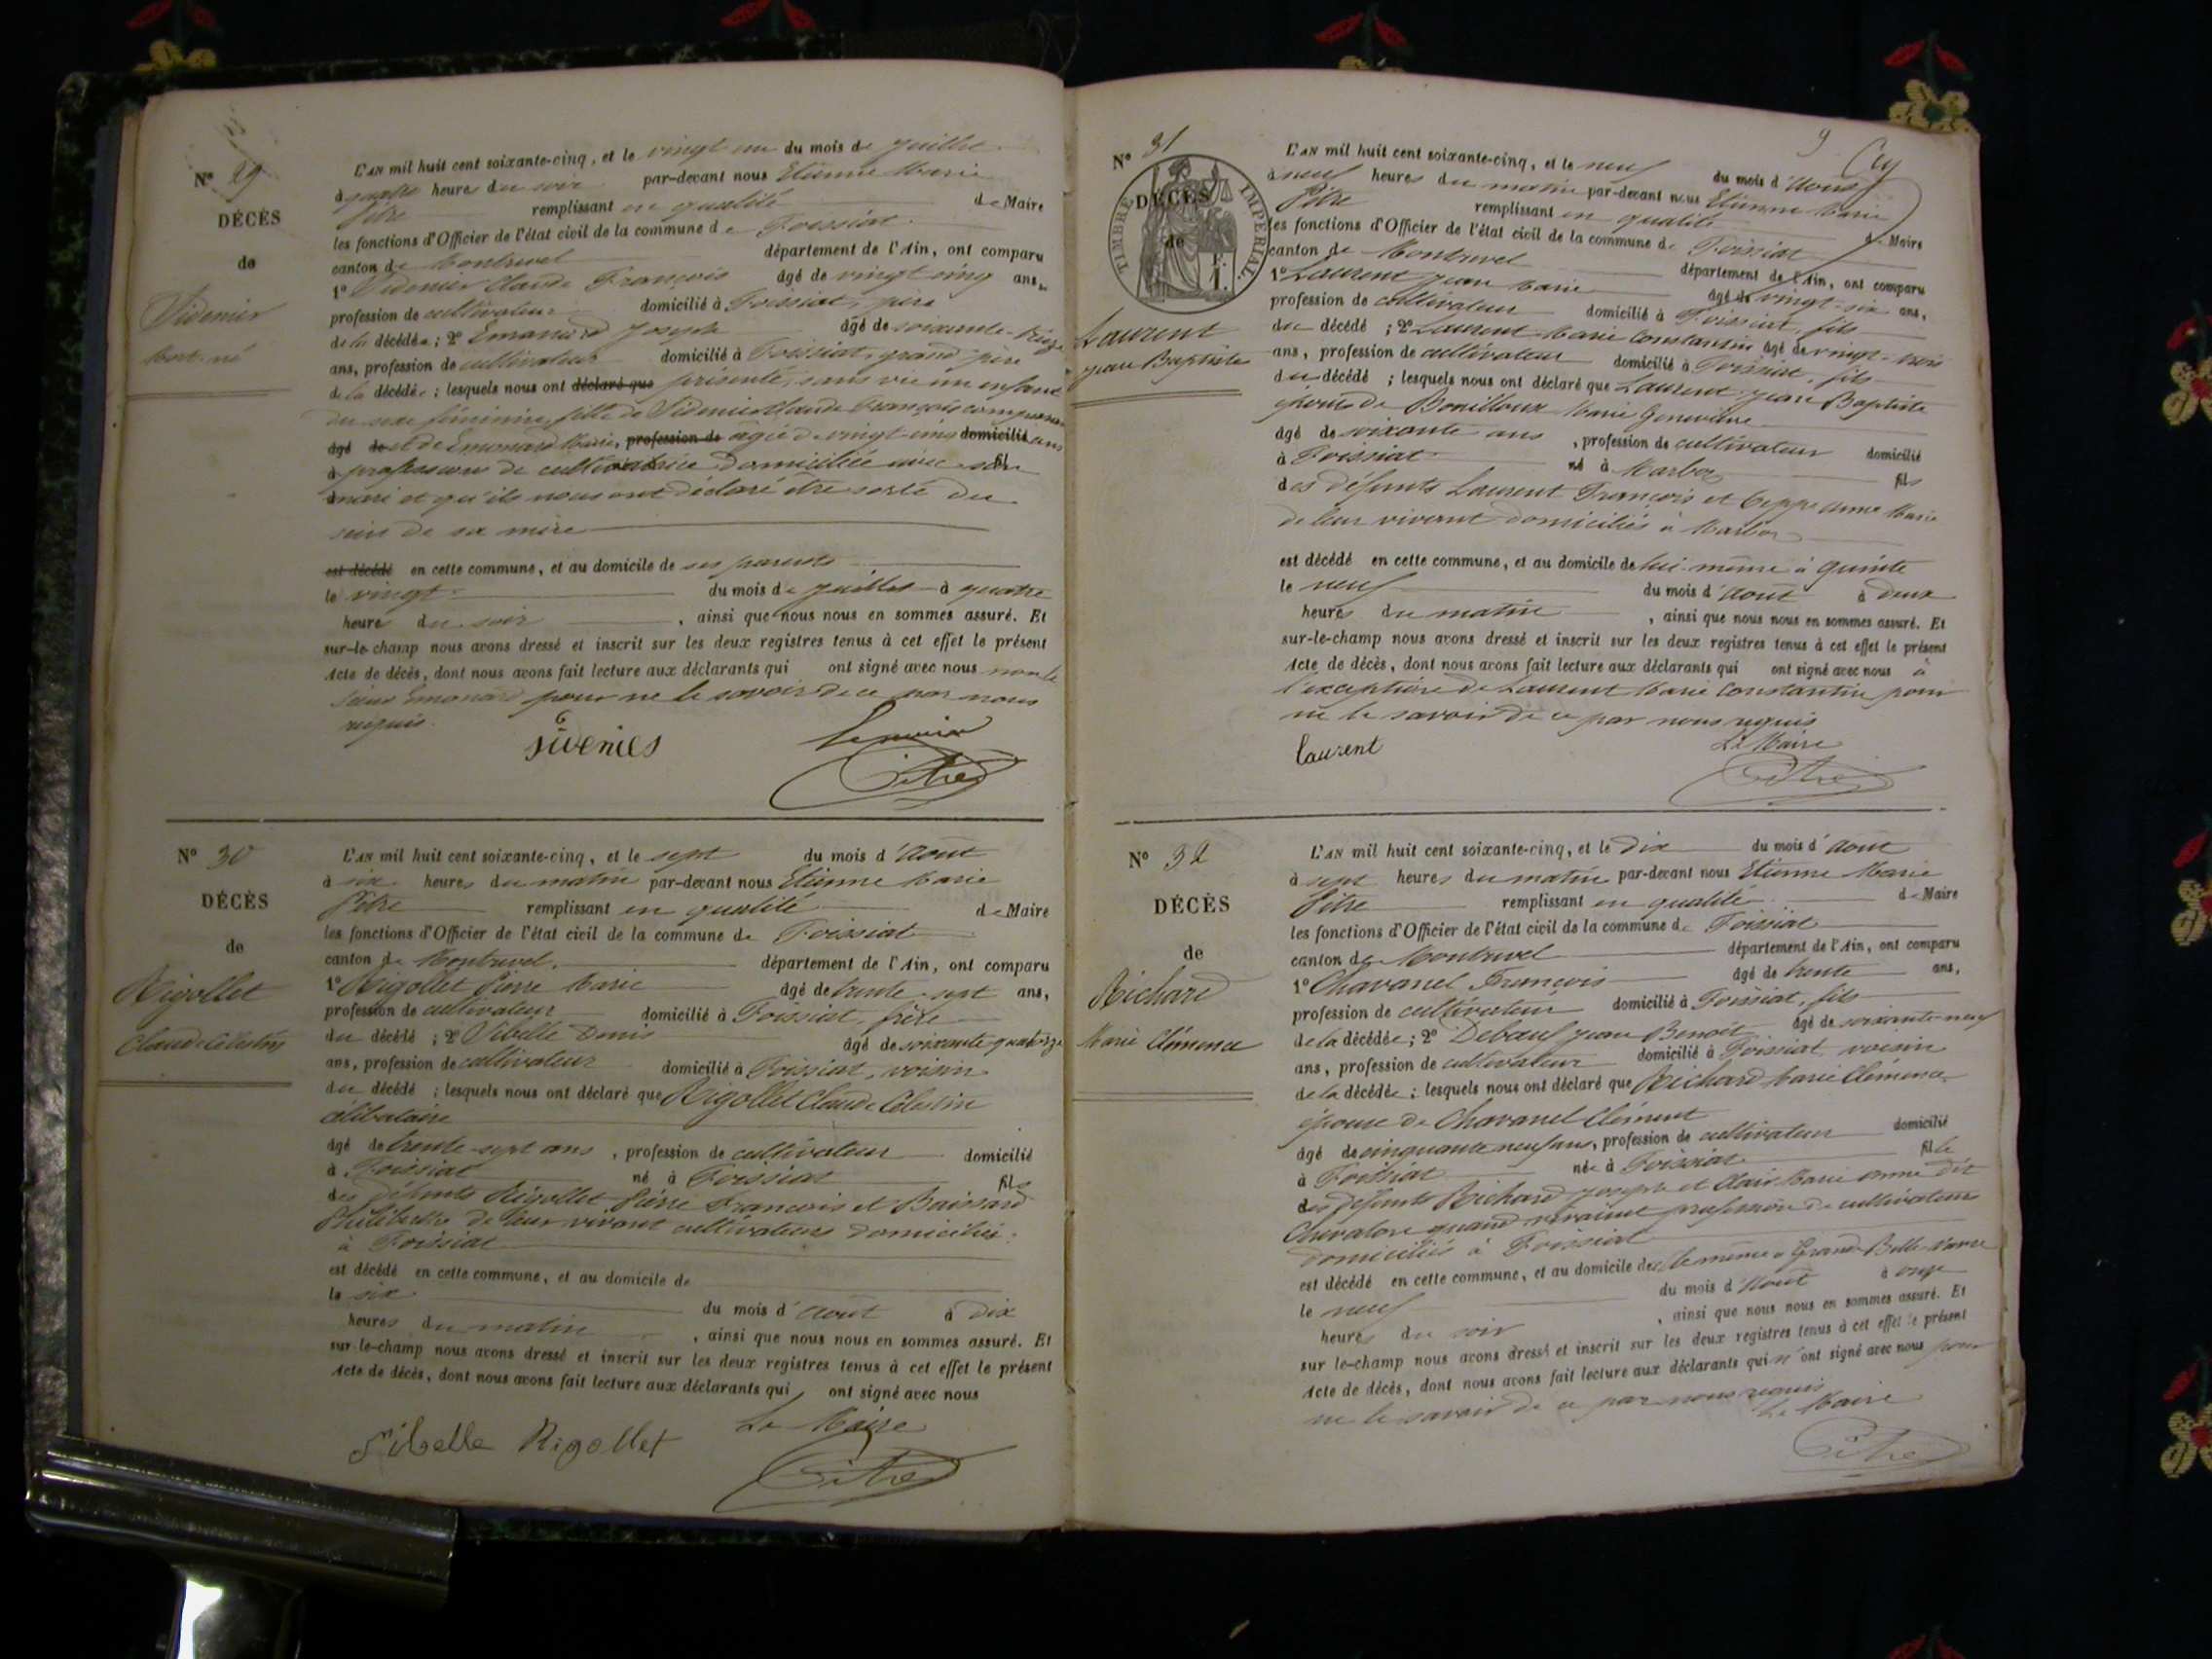 N° 29
DÉCÈS
de
Sidenier
Mort-né
L'AN mil huit cent soixante-cinq, et le vingt un du mois de juillet
à quatre heures du soir par-devant nous Etienne Marie
Pitre remplissant en qualité de Maire
les fonctions d'Officier de l'état civil de la commune de Foissiat
canton de Montrevel département de l'Ain, ont comparu
1° Sidenier Claude François âgé de vingt cinq ans,
profession de cultivateur domicilié à Foissiat, père
de la décédée; 2° Emonard Joseph âgé de soixante-treize
ans, profession de cultivateur domicilié à Foissiat, grand père
de la décédée; lesquels nous ont déclaré que présenté, sans vie un enfant
du sexe féminin, fille de Sidenier Claude François comparant
âgé de et de Emonard Marie, profession de âgée de vingt cinq domicilié ans
à profession de cultivatrice domiciliée avec son fil
mari et qu'ils nous ont déclaré être sorti du
sein de sa mère
est décédé en cette commune, et au domicile de ses parents
le vingt du mois de juillet à quatre
heure du soir, ainsi que nous nous en sommes assuré. Et
sur-le-champ nous avons dressé et inscrit sur les deux registres tenus à cet effet le présent
Acte de décès, dont nous avons fait lecture aux déclarants qui ont signé avec nous non le
sieur Emonard pour ne le savoir de ce par nous
requis.
sidenies
Le maire
Pitre
N° 30
DÉCÈS
de
Rigollet
Claude Célestin
L'AN mil huit cent soixante-cinq, et le sept du mois d'Aout
à six heures du matin par-devant nous Etienne Marie
Pitre remplissant en qualité de Maire
les fonctions d'Officier de l'état civil de la commune de Foissiat
canton de Montrevel département de l'Ain, ont comparu
1° Rigollet Pierre Marie âgé de trente-sept ans,
profession de cultivateur domicilié à Foissiat, frère
du décédé; 2° Sibelle Denis âgé de soixante quatorze
ans, profession de cultivateur domicilié à Foissiat, voisin
du décédé; lesquels nous ont déclaré que Rigollet Claude Célestin
célibataire
âgé de trente-sept ans, profession de cultivateur domicilié
à Foissiat né à Foissiat fils
des défunts Rigollet Pierre François et Buissard
Philiberte de leur vivant cultivateurs domiciliés
à Foissiat
est décédé en cette commune, et au domicile de
le six du mois d'Aout à dix
heures du matin, ainsi que nous nous en sommes assuré. Et
sur-le-champ nous avons dressé et inscrit sur les deux registres tenus à cet effet le présent
Acte de décès, dont nous avons fait lecture aux déclarants qui ont signé avec nous
Sibelle Rigollet
Le Maire
Pitre
9
N° 31
TIMBRE IMPÉRIAL
DÉCÈS
de
Laurent
Jean Baptiste
L'AN mil huit cent soixante-cinq, et le neuf du mois d'Aout
à neuf heures du matin par-devant nous Etienne Marie
Pitre remplissant en qualité de Maire
les fonctions d'Officier de l'état civil de la commune de Foissiat
canton de Montrevel département de l'Ain, ont comparu
1° Laurent Jean Marie âgé de vingt-six ans,
profession de cultivateur domicilié à Foissiat, fils
du décédé; 2° Laurent Marie Constantin âgé de vingt-trois
ans, profession de cultivateur domicilié à Foissiat, fils
du décédé; lesquels nous ont déclaré que Laurent Jean Baptiste
époux de Bouilloux Marie Geneviève
âgé de soixante ans, profession de cultivateur domicilié
à Foissiat né à Marboz fils
des défunts Laurent François et Beppe Anne Marie
de leur vivant domiciliés à Marboz
est décédé en cette commune, et au domicile de lui-même à
le neuf du mois d'Aout à deux
heures du matin, ainsi que nous nous en sommes assuré. Et
sur-le-champ nous avons dressé et inscrit sur les deux registres tenus à cet effet le présent
Acte de décès, dont nous avons fait lecture aux déclarants qui ont signé avec nous à
l'exception de Laurent Marie Constantin pour
ne le savoir de ce par nous requis
Laurent
Le Maire
Pitre
N° 32
DÉCÈS
de
Richard
Marie Clémence
L'AN mil huit cent soixante-cinq, et le dix du mois d'Aout
à sept heures du matin par-devant nous Etienne Marie
Pitre remplissant en qualité de Maire
les fonctions d'Officier de l'état civil de la commune de Foissiat
canton de Montrevel département de l'Ain, ont comparu
1° Chavanel François âgé de trente ans,
profession de cultivateur domicilié à Foissiat, fils
de la décédée; 2° Debœuf Jean Benoit âgé de soixante-neuf
ans, profession de cultivateur domicilié à Foissiat voisin
de la décédée; lesquels nous ont déclaré que Richard Marie Clémence
épouse de Chavanel Clément
âgé de cinquante neuf ans, profession de cultivateur domicilié
à Foissiat née à Foissiat fille
des défunts Richard Joseph et Clair Marie Anne dit
quand vivaient profession de cultivateurs
domiciliés à Foissiat
est décédé en cette commune, et au domicile
le neuf du mois d'Aout à onze
heures du soir, ainsi que nous nous en sommes assuré. Et
sur le-champ nous avons dressé et inscrit sur les deux registres tenus à cet effet le présent
Acte de décès, dont nous avons fait lecture aux déclarants qui n'ont signé avec nous pour
ne le savoir de ce par nous requis
Le Maire
Pitre